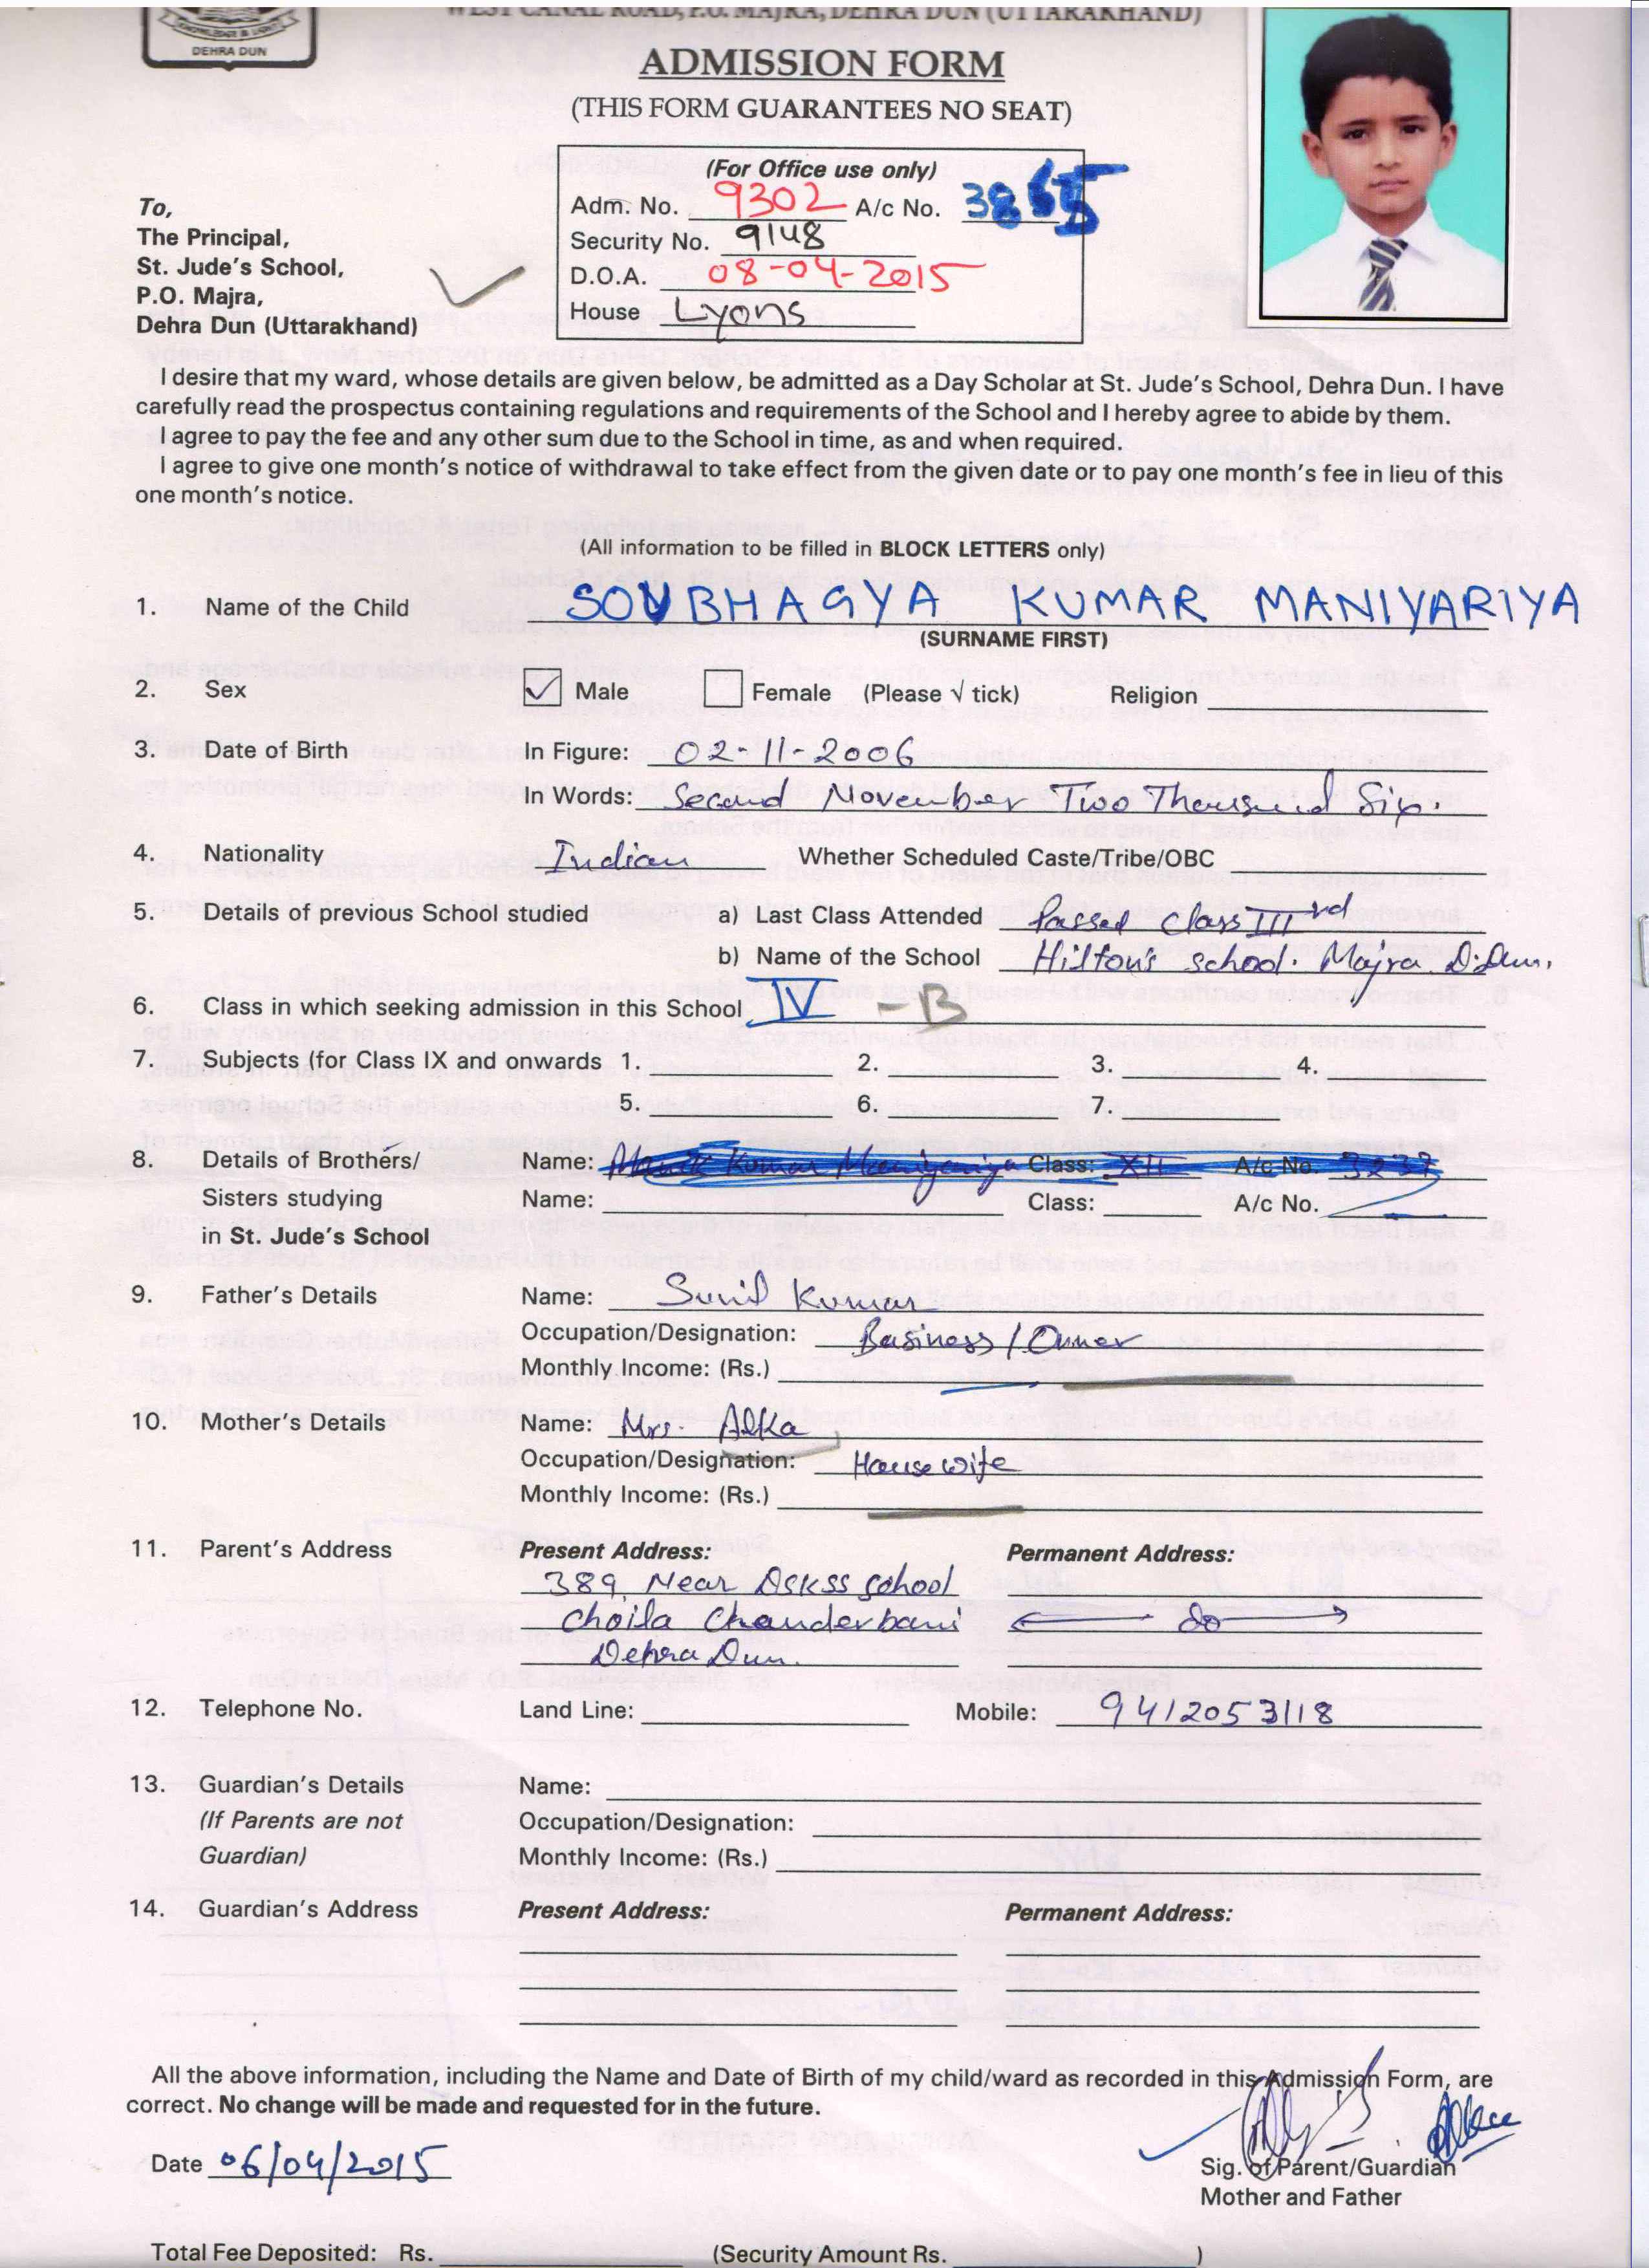 WEST CANAL ROAD, P.O. MAJRA, DEHRA DUN (UTTARAKHAND)
DEHRA DUN
ADMISSION FORM
(THIS FORM GUARANTEES NO SEAT)
(For Office use only)
Adm. No. 9302 A/c No. 3865
Security No. 9148
D.O.A. 08-04-2015
House Lyons
To,
The Principal,
St. Jude's School,
P.O. Majra,
Dehra Dun (Uttarakhand)
I desire that my ward, whose details are given below, be admitted as a Day Scholar at St. Jude's School, Dehra Dun. I have
carefully read the prospectus containing regulations and requirements of the School and I hereby agree to abide by them.
I agree to pay the fee and any other sum due to the School in time, as and when required.
I agree to give one month's notice of withdrawal to take effect from the given date or to pay one month's fee in lieu of this
one month's notice.
(All information to be filled in BLOCK LETTERS only)
1. Name of the Child SOUBHAGYA KUMAR MANIYARIYA
(SURNAME FIRST)
2. Sex Male Female (Please √ tick) Religion
3. Date of Birth In Figure: 02-11-2006
In Words: Second November Two Thousand Six.
4. Nationality Indian Whether Scheduled Caste/Tribe/OBC
5. Details of previous School studied a) Last Class Attended Passed Class IIIrd
b) Name of the School Hilton's School. Majra D.Dun.
6. Class in which seeking admission in this School IV -B
7. Subjects (for Class IX and onwards 1. 2. 3. 4.
5. 6. 7.
8. Details of Brothers/ Name: Kumar Maniyariya Class: XII A/c No. 3237
Sisters studying Name: Class: A/c No.
in St. Jude's School
9. Father's Details Name: Sunil Kumar
Occupation/Designation: Business / Owner
Monthly Income: (Rs.)
10. Mother's Details Name: Mrs. Alka
Occupation/Designation: House wife
Monthly Income: (Rs.)
11. Parent's Address Present Address: Permanent Address:
389, Near DSKSS School
Choila Chanderbani do
Dehra Dun.
12. Telephone No. Land Line: Mobile: 9412053118
13. Guardian's Details Name:
(If Parents are not Occupation/Designation:
Guardian) Monthly Income: (Rs.)
14. Guardian's Address Present Address: Permanent Address:
All the above information, including the Name and Date of Birth of my child/ward as recorded in this Admission Form, are
correct. No change will be made and requested for in the future.
Date 06/04/2015
Sig. of Parent/Guardian
Mother and Father
Total Fee Deposited: Rs. (Security Amount Rs. )